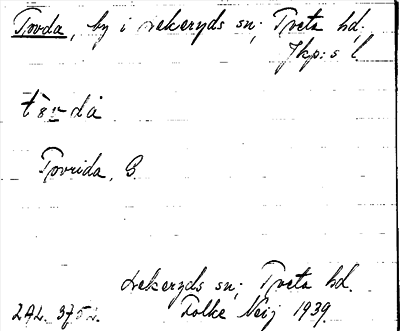 Tovda, by i Lekeryds sn; Tveta hd.
Jkp:s l.
Tovrida, B.
Lekeryds sn; Tveta hd.
Folke Neij 1939.